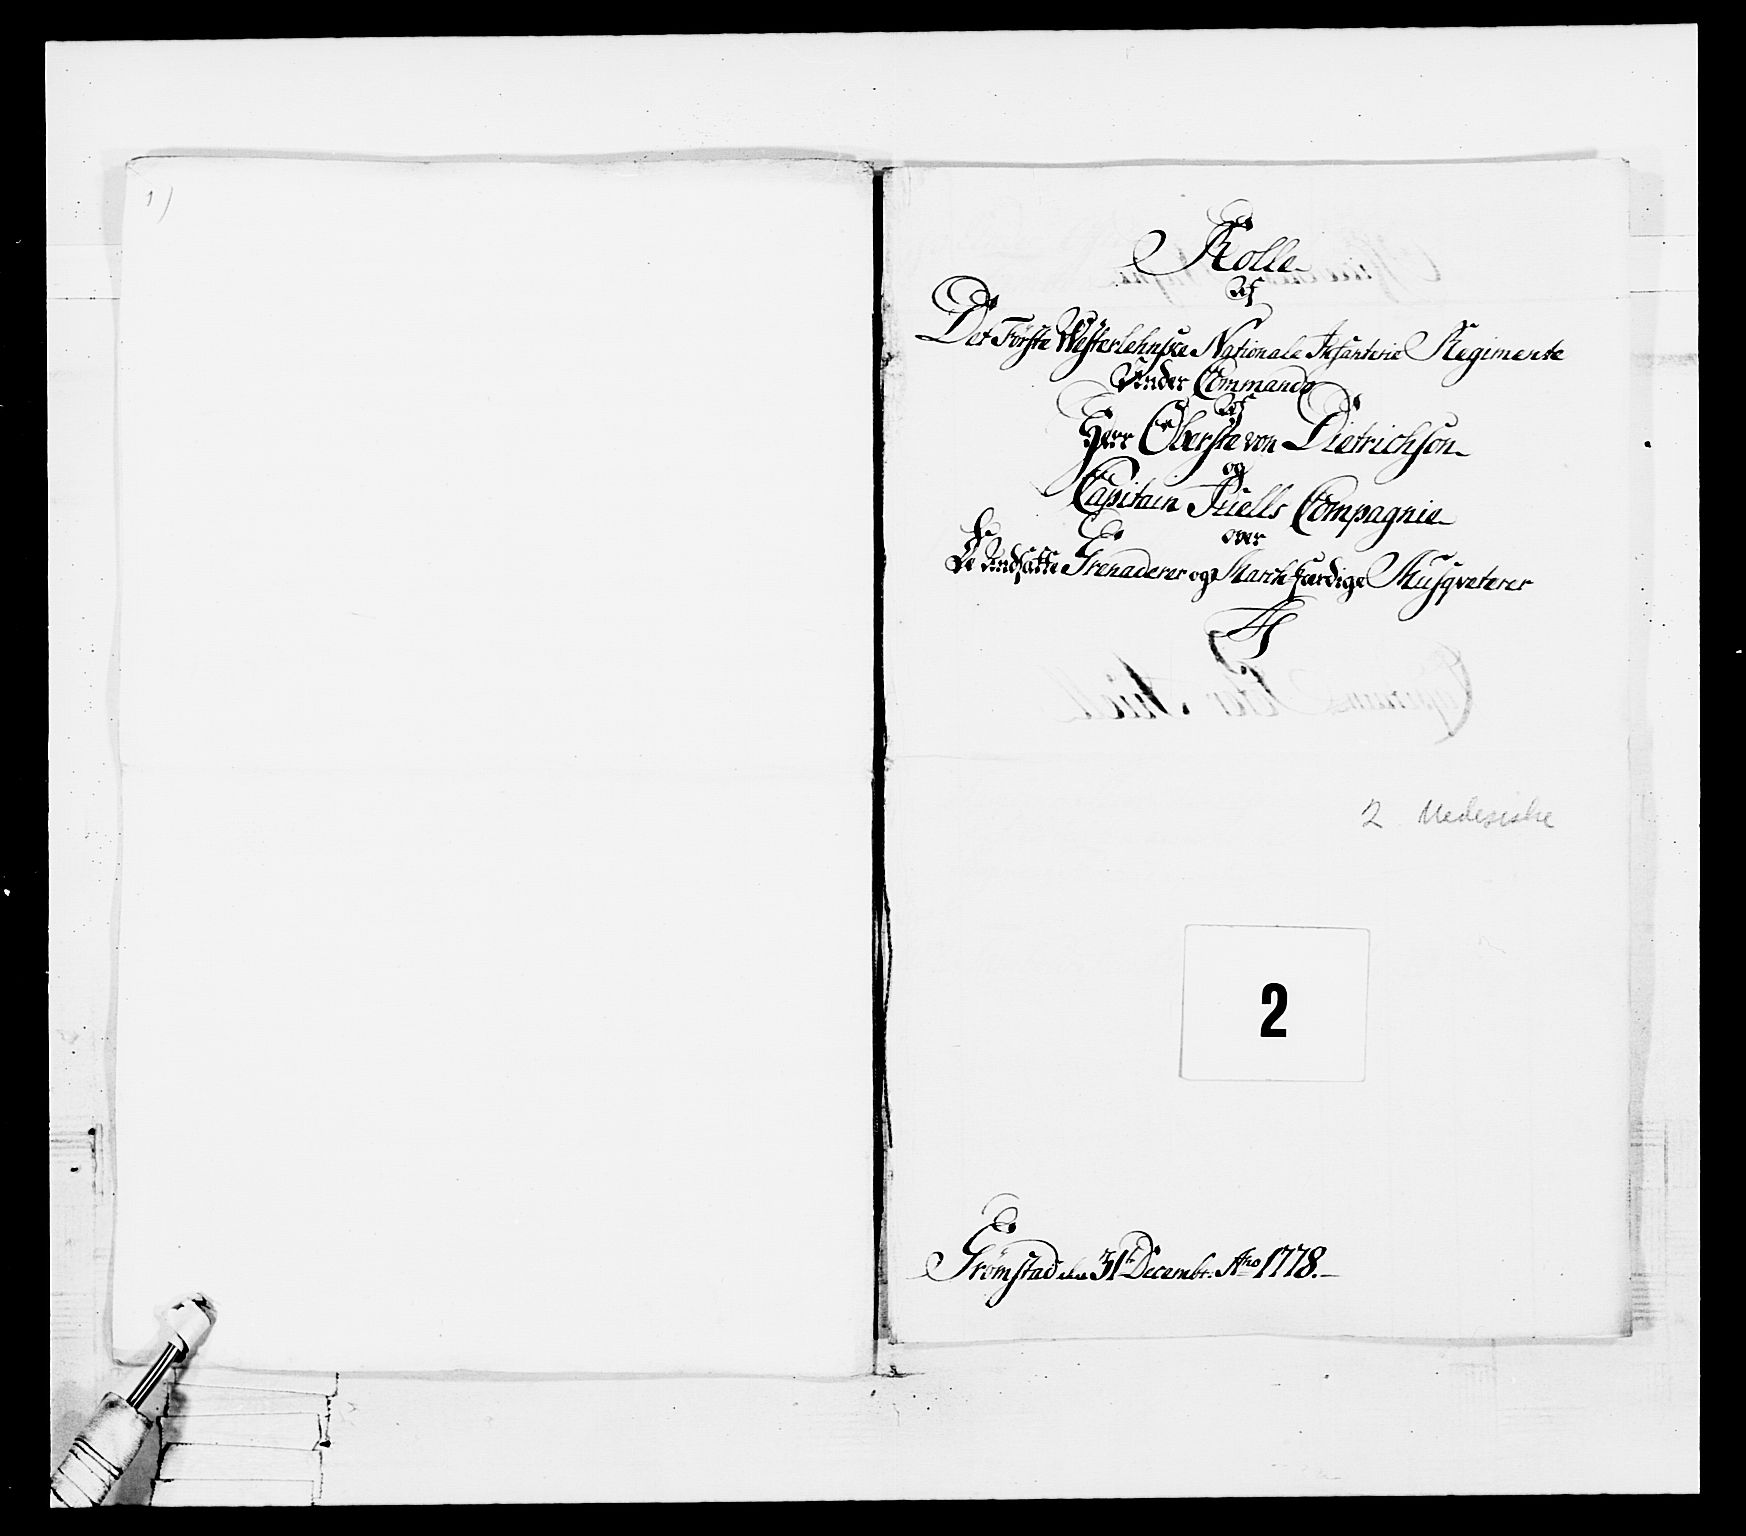 1)
Rolle
Af
Det Förste Westerlehnske Nationale Infanterie Regimente
Under Commando
Af
Herr Oberste von Dietrichson
og
Capitain Tuells Compagnie
over
De Undsatte Grenaderer og March færdige Musqveterer
Af
2 Nedesiske
2
Grömstad den 31te Decembr. Ano 1778.